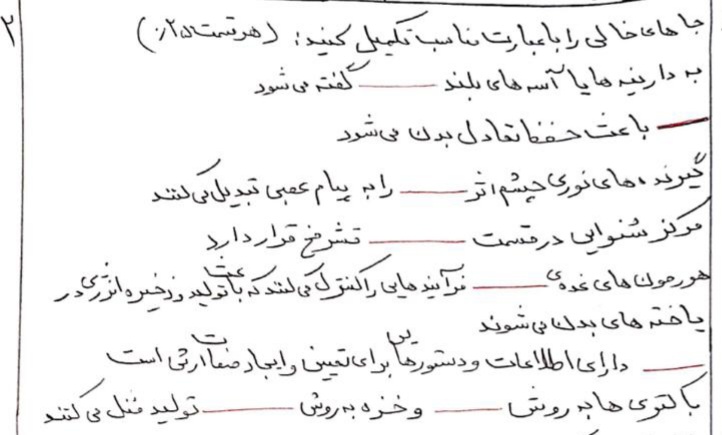 ۲
جاهای خالی را با عبارت مناسب تکمیل کنید: (هر قسمت ۰/۲۵)
به دارینه ها یا آسه های بلند ____ گفته می شود
____ باعث حفظ تعادل بدن می شود
گیرنده های نوری چشم اثر ____ را به پیام عصبی تبدیل می کنند
مرکز شنوایی در قسمت ____ قشر مخ قرار دارد
هورمون های غده ی ____ فرآیندهایی را کنترل می کنند که باعث تولید و ذخیره انرژی در
یاخته های بدن می شوند
____ دارای اطلاعات و دستورهایی برای تعیین و ایجاد صفات ارثی است
باکتری ها به روش ____ و خزه به روش ____ تولید مثل می کنند